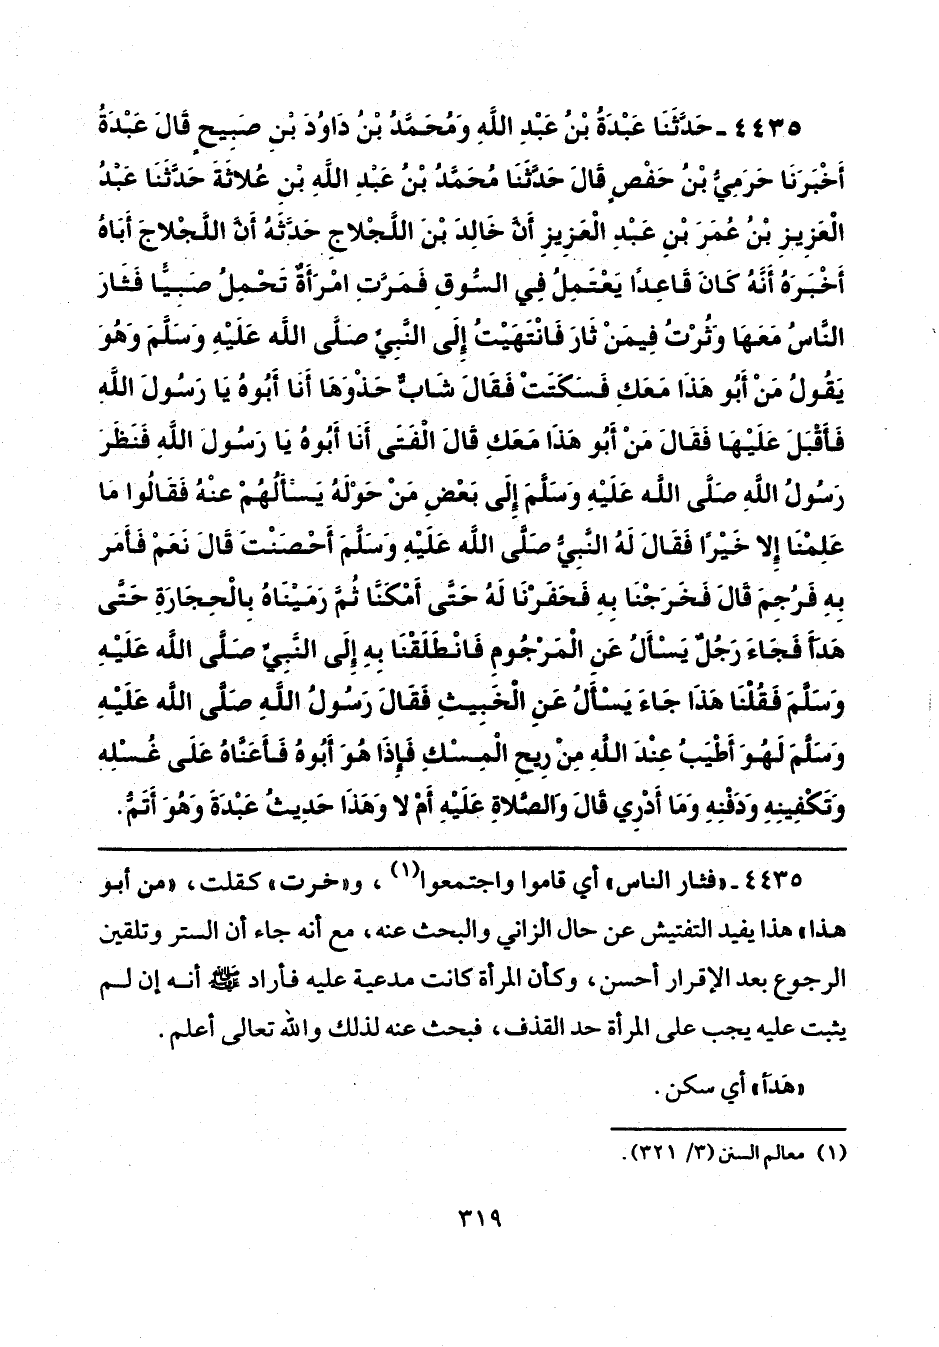 ٤٤٣٥ ـ حَدَّثَنَا عَبْدَةُ بْنُ عَبْدِ اللَّهِ وَمُحَمَّدُ بْنُ دَاوُدَ بْنِ صَبِيحٍ قَالَ عَبْدَةُ
أَخْبَرَنَا حَرَمِيُّ بْنُ حَفْصٍ قَالَ حَدَّثَنَا مُحَمَّدُ بْنُ عَبْدِ اللَّهِ بْنِ عُلاثَةَ حَدَّثَنَا عَبْدُ
الْعَزِيزِ بْنُ عُمَرَ بْنِ عَبْدِ الْعَزِيزِ أَنَّ خَالِدَ بْنَ اللَّجْلاجِ حَدَّثَهُ أَنَّ اللَّجْلاجَ أَبَاهُ
أَخْبَرَهُ أَنَّهُ كَانَ قَاعِدًا يَعْتَمِلُ فِي السُّوقِ فَمَرَّتِ امْرَأَةٌ تَحْمِلُ صَبِيًّا فَثَارَ
النَّاسُ مَعَهَا وَثُرْتُ فِيمَنْ ثَارَ فَانْتَهَيْتُ إِلَى النَّبِيِّ صَلَّى الله عَلَيْهِ وَسَلَّمَ وَهُوَ
يَقُولُ مَنْ أَبُو هَذَا مَعَكِ فَسَكَتَتْ فَقَالَ شَابٌّ حَذْوَهَا أَنَا أَبُوهُ يَا رَسُولَ اللَّهِ
فَأَقْبَلَ عَلَيْهَا فَقَالَ مَنْ أَبُو هَذَا مَعَكِ قَالَ الْفَتَى أَنَا أَبُوهُ يَا رَسُولَ اللَّهِ فَنَظَرَ
رَسُولُ اللَّهِ صَلَّى اللَّه عَلَيْهِ وَسَلَّمَ إِلَى بَعْضِ مَنْ حَوْلَهُ يَسْأَلُهُمْ عَنْهُ فَقَالُوا مَا
عَلِمْنَا إِلا خَيْرًا فَقَالَ لَهُ النَّبِيُّ صَلَّى الله عَلَيْهِ وَسَلَّمَ أَحْصَنْتَ قَالَ نَعَمْ فَأَمَرَ
بِهِ فَرُجِمَ قَالَ فَخَرَجْنَا بِهِ فَحَفَرْنَا لَهُ حَتَّى أَمْكَنَّا ثُمَّ رَمَيْنَاهُ بِالْحِجَارَةِ حَتَّى
هَدَأَ فَجَاءَ رَجُلٌ يَسْأَلُ عَنِ الْمَرْجُومِ فَانْطَلَقْنَا بِهِ إِلَى النَّبِيِّ صَلَّى الله عَلَيْهِ
وَسَلَّمَ فَقُلْنَا هَذَا جَاءَ يَسْأَلُ عَنِ الْخَبِيثِ فَقَالَ رَسُولُ اللَّهِ صَلَّى الله عَلَيْهِ
وَسَلَّمَ لَهُوَ أَطْيَبُ عِنْدَ اللَّهِ مِنْ رِيحِ الْمِسْكِ فَإِذَا هُوَ أَبُوهُ فَأَعَنَّاهُ عَلَى غُسْلِهِ
وَتَكْفِينِهِ وَدَفْنِهِ وَمَا أَدْرِي قَالَ وَالصَّلاةِ عَلَيْهِ أَمْ لا وَهَذَا حَدِيثُ عَبْدَةَ وَهُوَ أَتَمُّ.
٤٤٣٥ ـ «فثار الناس» أي قاموا واجتمعوا(١)، و«خرت» كقلت، «من أبو
هذا» هذا يفيد التفتيش عن حال الزاني والبحث عنه، مع أنه جاء أن الستر وتلقين
الرجوع بعد الإقرار أحسن، وكأن المرأة كانت مدعية عليه فأراد ﷺ أنه إن لم
يثبت عليه يجب على المرأة حد القذف، فبحث عنه لذلك والله تعالى أعلم.
«هَدَأَ» أي سكن.
(١) معالم السنن (٣/ ٣٢١).
٣١٩